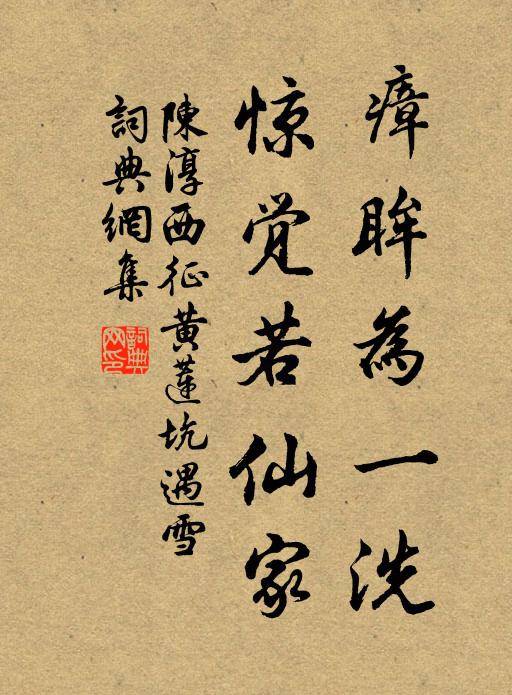 瘴眸為一洗
惊觉若仙家
陳淳西征黄蓮坑遇雪
詞典網集
詞典网印